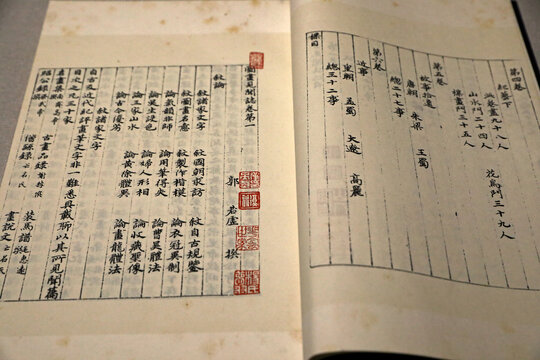 第四卷
紀藝下
畫九十八人
山水門二十四人 花鳥門三十九人
雜畫門三十五人
第五卷
故事拾遺
唐朝 朱梁 王蜀
總二十七事
第六卷
近事
皇朝 孟蜀 大遼 高麗
總三十二事
標目
圖畫見聞誌卷第一
郭 若虛 撰
敘論
敘諸家文字 敘國朝求訪 敘自古規鑒
敘圖畫名意 敘製作楷模 論衣冠異制
論氣韻非師 論用筆得失 論曹吳體法
論吳生設色 論婦人形相 論收藏聖像
論三家山水 論黃徐體異 論畫龍體法
論古今優劣
敘諸家文字
自古及近代紀評畫筆文字非一難悉具載聊以其所見聞篇
目次之凡三十家
名畫集 古畫品錄謝赫撰 裝馬譜
昭公錄梁武帝 亡名氏 畫說文亡名氏